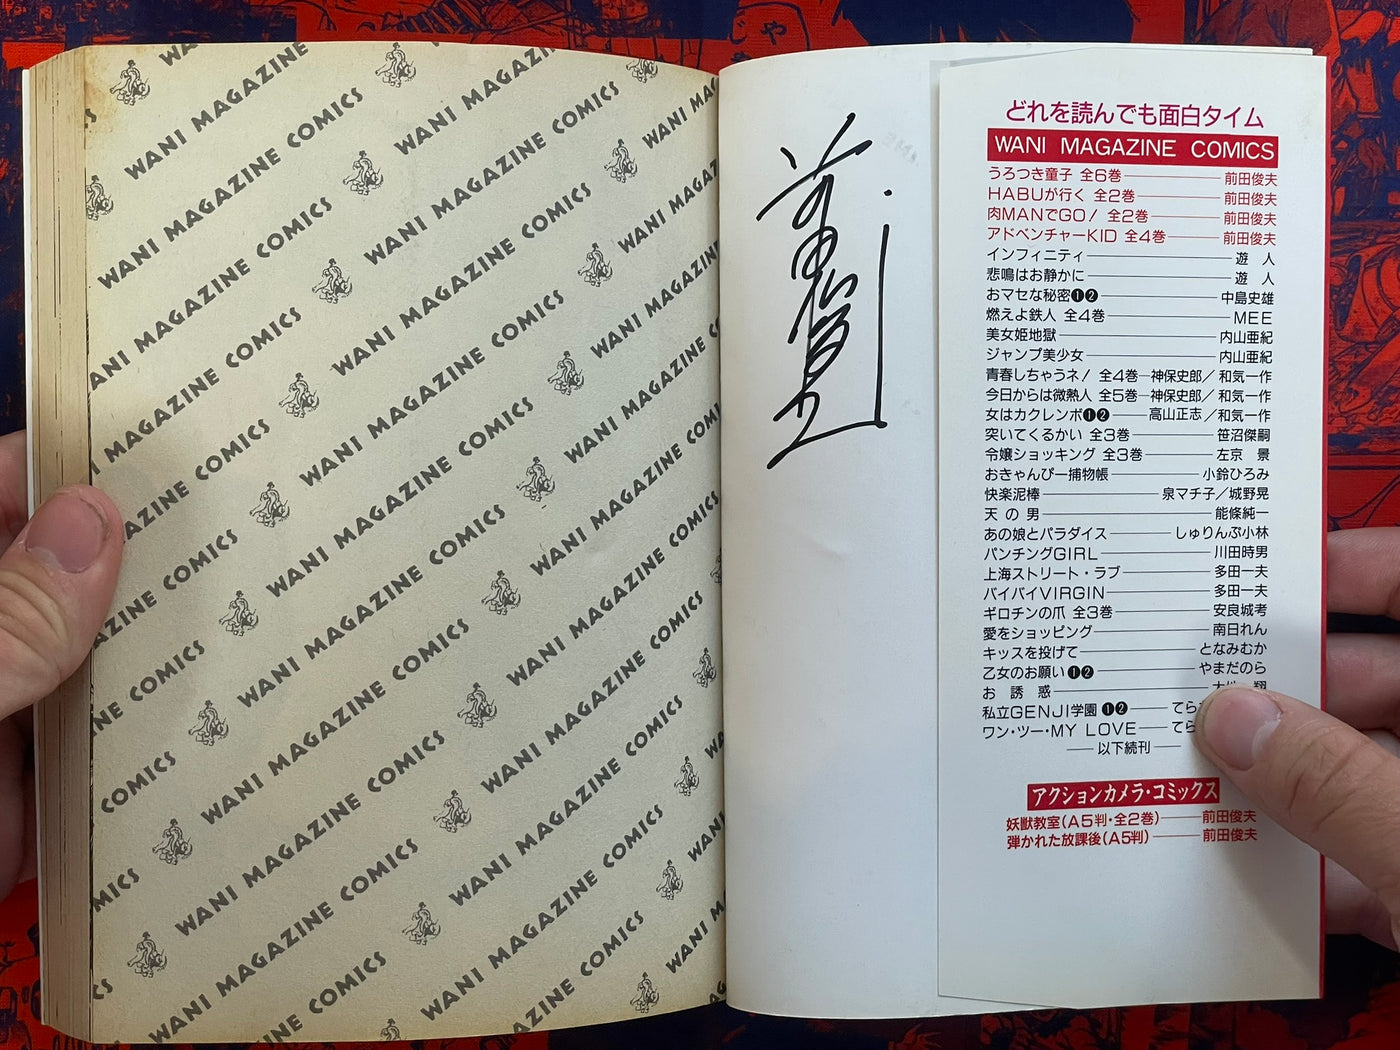 WANI MAGAZINE COMICS
どれを読んでも面白タイム
WANI MAGAZINE COMICS
うろつき童子 全6巻 前田俊夫
HABUが行く 全2巻 前田俊夫
肉MANでGO! 全2巻 前田俊夫
アドベンチャーKID 全4巻 前田俊夫
インフィニティ 遊 人
悲鳴はお静かに 遊 人
おマセな秘密❶❷ 中島史雄
燃えよ鉄人 全4巻 MEE
美女姫地獄 内山亜紀
ジャンプ美少女 内山亜紀
青春しちゃうネ! 全4巻 神保史郎/和気一作
今日からは微熱人 全5巻 神保史郎/和気一作
女はカクレンボ❶❷ 高山正志/和気一作
突いてくるかい 全3巻 笹沼傑嗣
令嬢ショッキング 全3巻 左京 景
おきゃんぴー捕物帳 小鈴ひろみ
快楽泥棒 泉マチ子/城野晃
天の男 能條純一
あの娘とパラダイス しゅりんぷ小林
パンチングGIRL 川田時男
上海ストリート・ラブ 多田一夫
バイバイVIRGIN 多田一夫
ギロチンの爪 全3巻 安良城考
愛をショッピング 南日れん
キッスを投げて となみむか
乙女のお願い❶❷ やまだのら
お誘惑 翔
私立GENJI学園❶❷ てら
ワン・ツー・MY LOVE てら
以下続刊
アクションカメラ・コミックス
妖獣教室(A5判・全2巻) 前田俊夫
弾かれた放課後(A5判) 前田俊夫